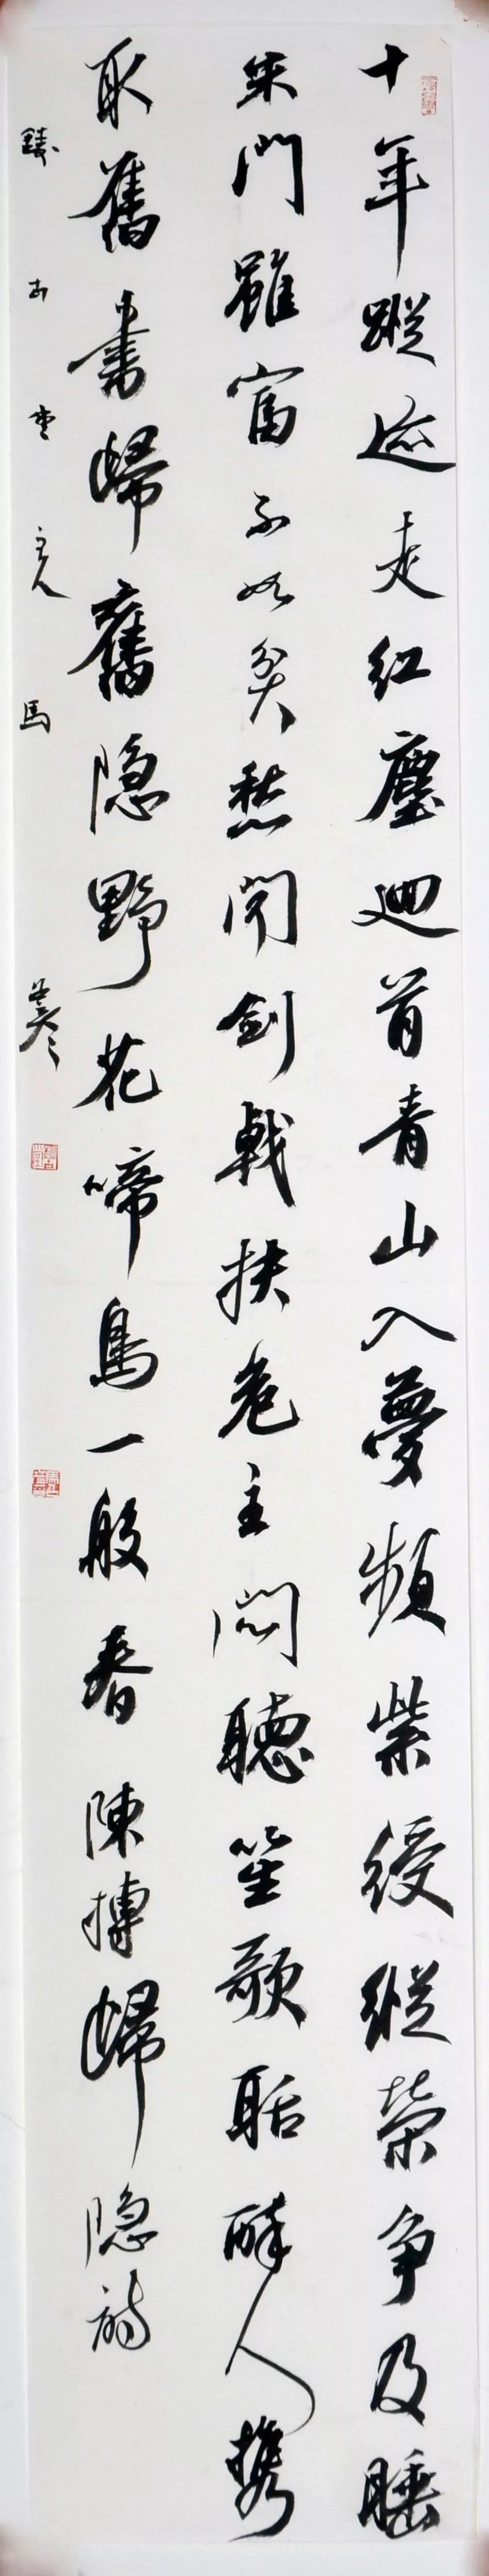 十年蹤迹走红塵迴首青山入夢頻紫綬縱榮争及睡
朱門雖富不如貧愁聞劍戟扶危主悶聽笙歌聒醉人携
取舊書歸舊隐野花啼鳥一般春 陳摶歸隐詩
古堂主人馬